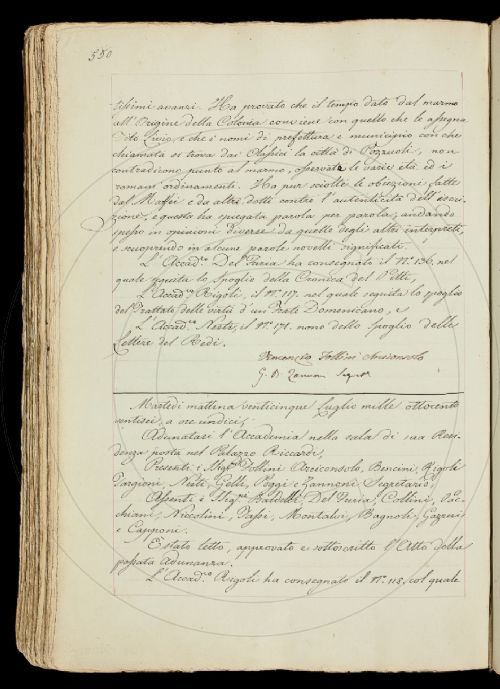 550
tissimi avanzi. Ha provato che il tempo dato dal marmo
all'Origine della Colonia conviene con quello che le assegna
Tito Livio, e che i nomi di prefettura e municipio con che
chiamata si trova dai Classici la città di Pozzuoli, non
contradicono punto al marmo, osservate le varie età ed i
romani ordinamenti. Ha pur sciolte le obiezioni fatte
dal Maffei e da altri dotti contro l'autenticità dell'escri-
zione, e questa ha spiegata parola per parola, andando
spesso in opinioni diverse da quelle degli altri interpreti,
e scuoprendo in alcune parole novelli significati.
L'Accad.co Del Furia ha consegnato il N.o 136. nel
quale seguita lo spoglio della Cronica del Pitti,
L'Accad.co Rigoli, il N.o 117. nel quale seguita lo spoglio
del Trattato delle virtù d'un Frate Domenicano, e
L'Accad.co Nesti, il N.o 171. nono dello spoglio delle
Lettere del Redi.
Vincenzio Follini Arciconsolo
G. B. Zannoni Segret.
Martedì mattina venticinque Luglio mille ottocento
ventisei, a ore undici,
Adunatasi l'Accademia nella sala di sua Resi-
denza posta nel Palazzo Riccardi,
Presenti i Sigg.ri Follini Arciconsolo, Bencini, Rigoli
Targioni, Nesti, Gelli, Poggi e Zannoni Segretario,
Assenti i Sigg.ri Baldelli, Del Furia, Collini, Pac-
chiani, Niccolini, Tassi, Montalvi, Bagnoli, Gazzeri
e Capponi.
È stato letto, approvato e sottoscritto l'Atto della
passata Adunanza.
L'Accad.co Rigoli ha consegnato il N.o 118. col quale